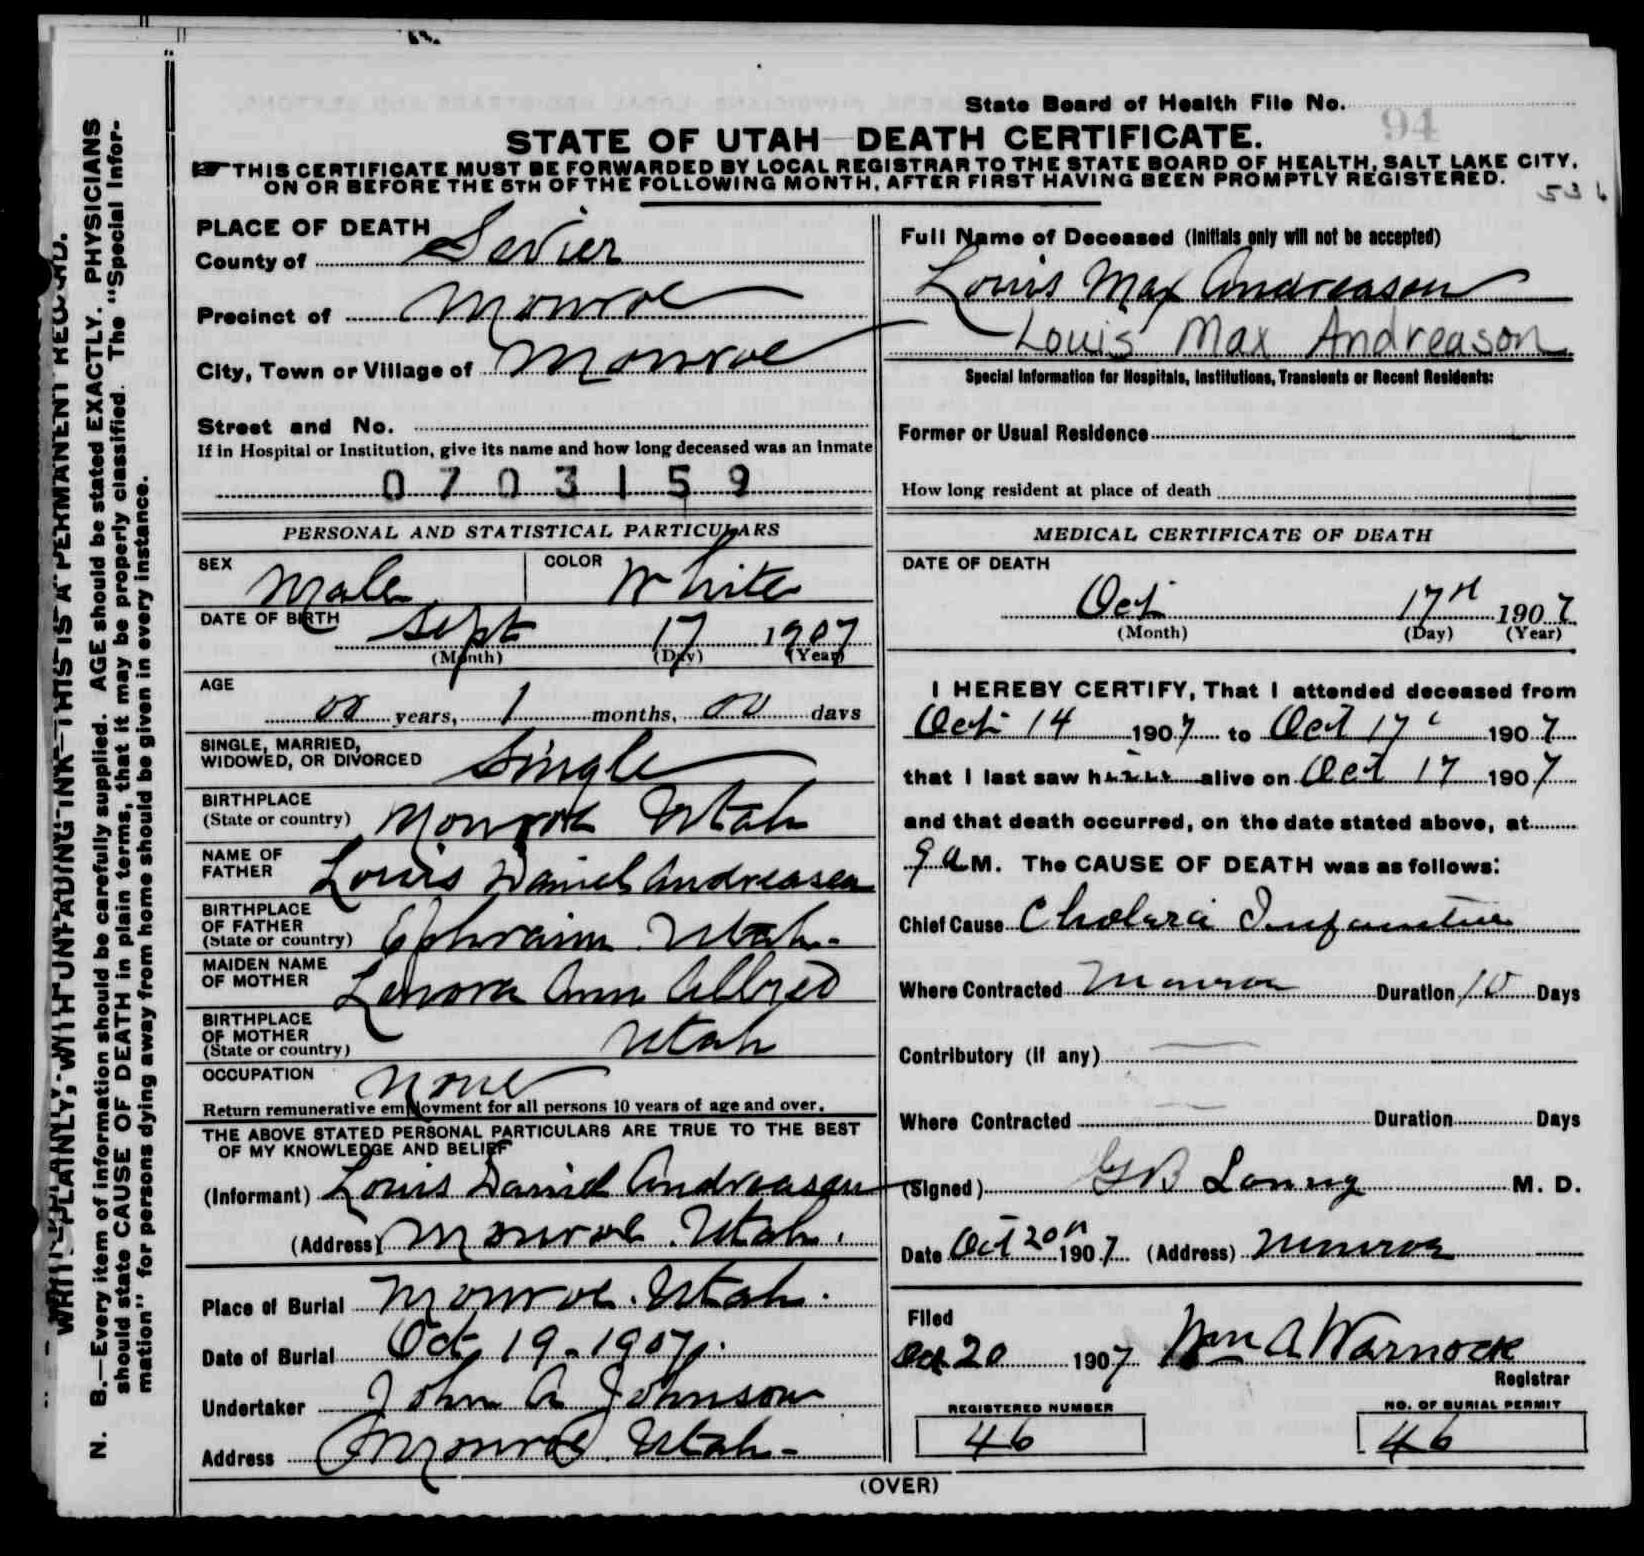 State Board of Health File No. 94
STATE OF UTAH—DEATH CERTIFICATE.
THIS CERTIFICATE MUST BE FORWARDED BY LOCAL REGISTRAR TO THE STATE BOARD OF HEALTH, SALT LAKE CITY,
ON OR BEFORE THE 5TH OF THE FOLLOWING MONTH, AFTER FIRST HAVING BEEN PROMPTLY REGISTERED.
536
WRITE PLAINLY, WITH UNFADING INK—THIS IS A PERMANENT RECORD.
N. B.—Every item of information should be carefully supplied. AGE should be stated EXACTLY. PHYSICIANS
should state CAUSE OF DEATH in plain terms, that it may be properly classified. The "Special Infor-
mation" for persons dying away from home should be given in every instance.
PLACE OF DEATH
County of Sevier
Precinct of Monroe
City, Town or Village of Monroe
Street and No.
If in Hospital or Institution, give its name and how long deceased was an inmate
0703159
PERSONAL AND STATISTICAL PARTICULARS
SEX Male COLOR White
DATE OF BIRTH Sept 17 1907
(Month) (Day) (Year)
AGE
00 years, 1 months, 00 days
SINGLE, MARRIED,
WIDOWED, OR DIVORCED Single
BIRTHPLACE
(State or country) Monroe Utah
NAME OF
FATHER Louis Daniel Andreasen
BIRTHPLACE
OF FATHER
(State or country) Ephraim Utah.
MAIDEN NAME
OF MOTHER Lenora Ann Allred
BIRTHPLACE
OF MOTHER
(State or country) Utah
OCCUPATION None
Return remunerative employment for all persons 10 years of age and over.
THE ABOVE STATED PERSONAL PARTICULARS ARE TRUE TO THE BEST
OF MY KNOWLEDGE AND BELIEF
(Informant) Louis Daniel Andreasen
(Address) Monroe. Utah.
Place of Burial Monroe. Utah.
Date of Burial Oct 19 - 1907.
Undertaker John A Johnson
Address Monroe. Utah-
Full Name of Deceased (Initials only will not be accepted)
Louis Max Andreasen
Louis Max Andreason
Special Information for Hospitals, Institutions, Transients or Recent Residents:
Former or Usual Residence
How long resident at place of death
MEDICAL CERTIFICATE OF DEATH
DATE OF DEATH
Oct 17th 1907
(Month) (Day) (Year)
I HEREBY CERTIFY, That I attended deceased from
Oct 14 1907 to Oct 17 1907
that I last saw h alive on Oct 17 1907
and that death occurred, on the date stated above, at
9 a M. The CAUSE OF DEATH was as follows:
Chief Cause Cholera Infantum
Where Contracted Monroe Duration 10 Days
Contributory (if any)
Where Contracted Duration Days
(Signed) G B M. D.
Date Oct 20th 1907 (Address) Monroe
Filed
Oct 20 1907 Wm A Warnock
Registrar
REGISTERED NUMBER
46
NO. OF BURIAL PERMIT
46
(OVER)